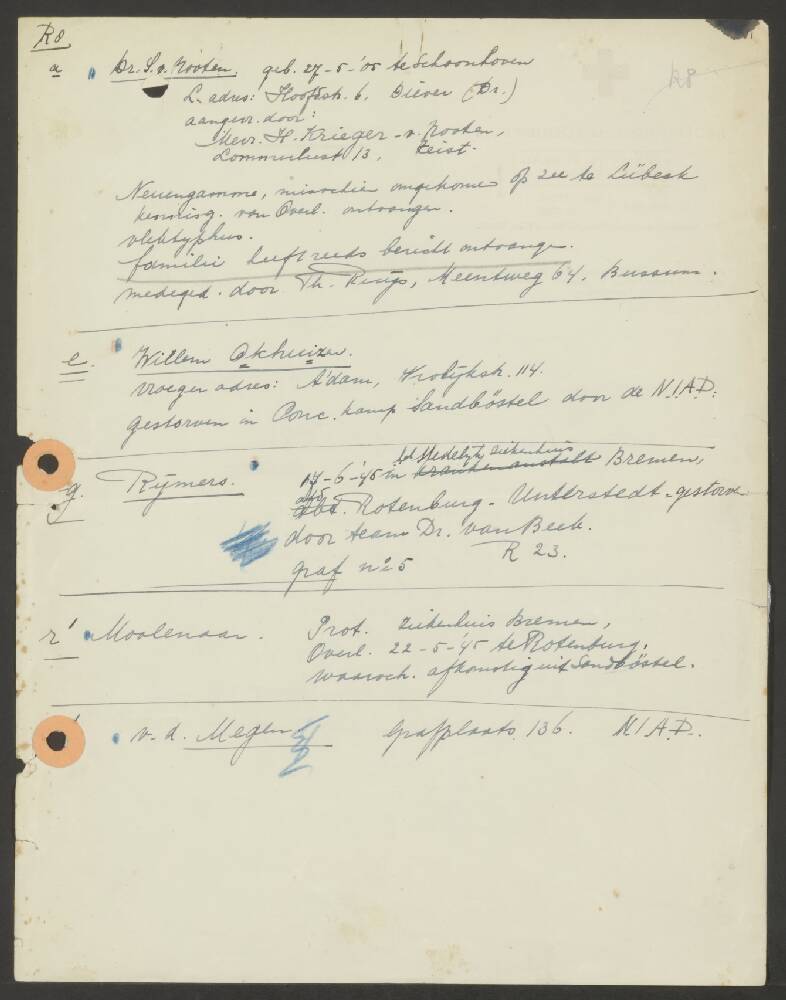 R8
R8
a Dr. S. v. Rooten. geb. 27-5-'05 te Schoonhoven
L. adres: Hoofdstr. 6. Diever (Dr.)
aangevr. door:
Mevr. H. Krieger - v. Rooten,
13, Zeist.
Neuengamme, misschien omgekomen op zee te Lübeck
kennisg. van Overl. ontvangen.
vlektyphus.
familie heeft reeds bericht ontvangen.
medeged. door Th. Meentweg 64. Bussum.
e. Willem Okhuizen.
vroeger adres: A'dam, 114.
gestorven in Conc. kamp Sandböstel door de N.I.A.D.
Stedelijk ziekenhuis
g. Rijmers. 17-6-'45 in krankenanstalt Bremen,
Rotenburg - Unterstedt - gestorven
door team Dr. van Beek.
graf no 5 R 23.
r' Moolenaar. Prot. ziekenhuis Bremen,
Overl. 22-5-'45 te Rotenburg.
waarsch. afkomstig uit Sandböstel.
v. d. Megen Grafplaats 136. N.I.A.D.